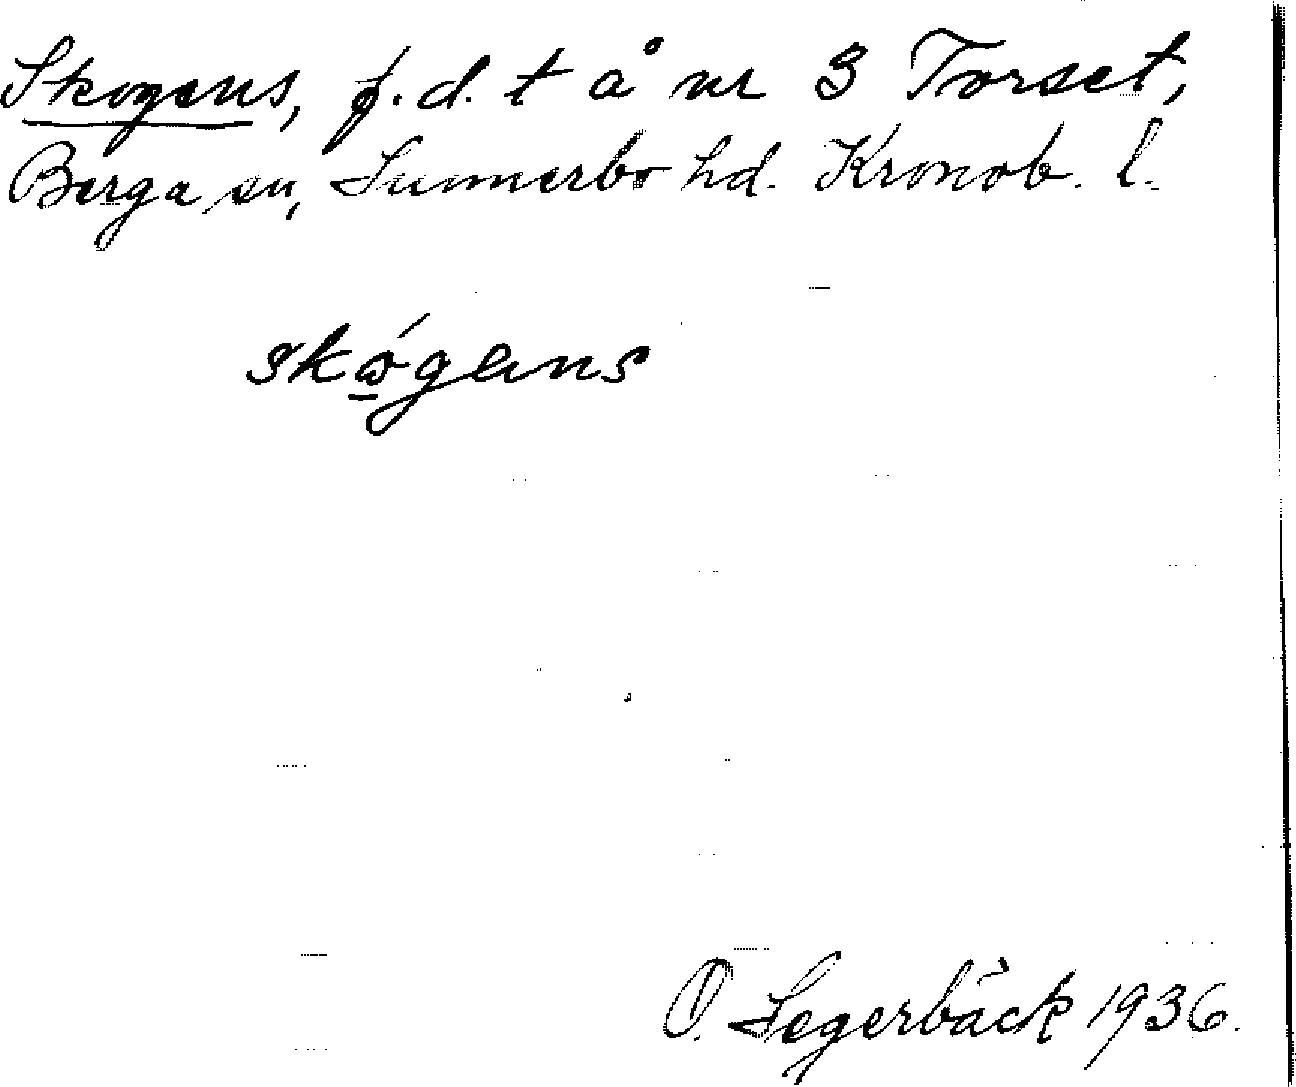 Skogens, f.d. t å nr 3 Torset,
Berga sn, Sunnerbo hd. Kronob. l.
skógens
O. Segerbäck 1936.